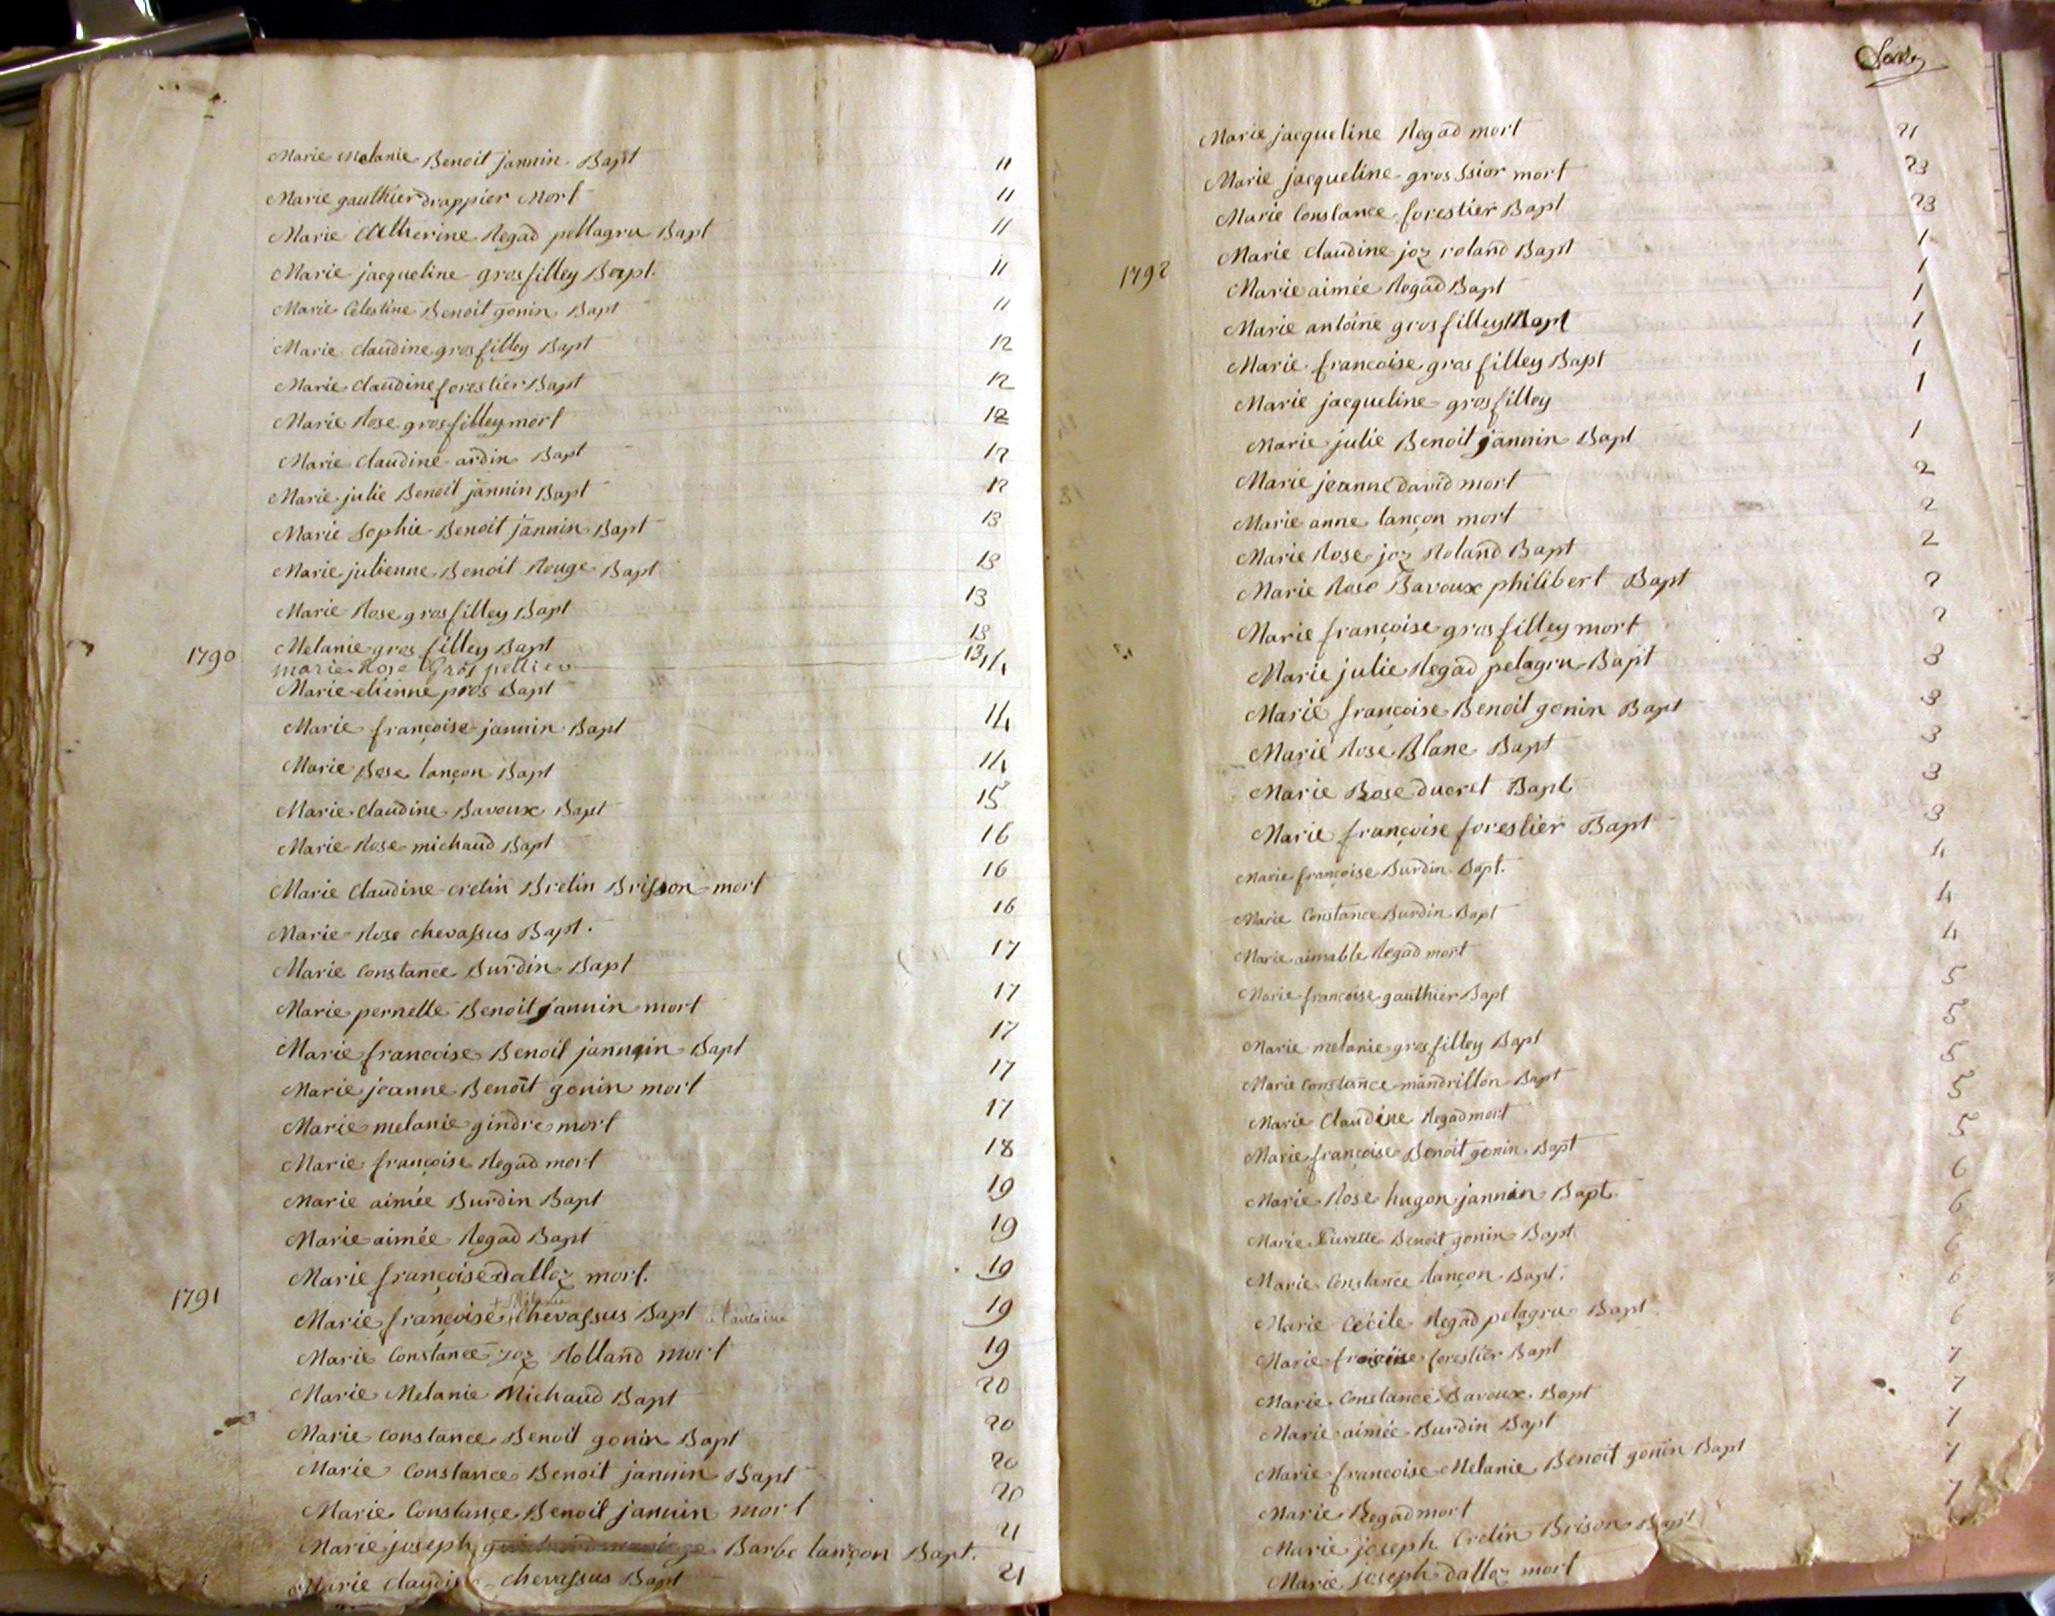 Marie Melanie Benoit jannin Bapt 11
Marie gauthier drappier Mort 11
Marie Catherine Regad pellagru Bapt 11
Marie jacqueline grosfilley Bapt. 11
Marie Célestine Benoit gonin Bapt 11
Marie Claudine grosfilley Bapt 12
Marie Claudine forestier Bapt 12
Marie Rose grosfilley mort 12
Marie Claudine ardin Bapt 12
Marie julie Benoit jannin Bapt 12
Marie Sophie Benoit jannin Bapt 13
Marie julienne Benoit Rouge Bapt 13
Marie Rose grosfilley Bapt 13
1790 Melanie grosfilley Bapt 13
marie Rose Gros pellier 13
Marie etienne pros Bapt 14
Marie françoise jannin Bapt 14
Marie Rose lançon Bapt 14
Marie Claudine Bavoux Bapt 15
Marie Rose michaud Bapt 16
Marie Claudine cretin Bretin Brisson mort 16
Marie Rose chevassus Bapt. 16
Marie Constance Burdin Bapt 17
Marie pernette Benoit jannin mort 17
Marie francoise Benoit jannin Bapt 17
Marie jeanne Benoit gonin mort 17
Marie melanie gindre mort 17
Marie françoise Regad mort 18
Marie aimée Burdin Bapt 19
Marie aimée Regad Bapt 19
Marie françoise Dalloz mort. 19
1791 Marie françoise chevassus Bapt 19
Marie Constance joz Rolland mort 19
Marie Melanie Michaud Bapt 20
Marie Constance Benoit gonin Bapt 20
Marie Constance Benoit jannin Bapt 20
Marie Constance Benoit jannin mort 20
Marie joseph Barbe lançon Bapt. 21
Marie chevassus Bapt 21
Marie jacqueline Regad mort 21
Marie jacqueline gros mort 23
Marie Constance forestier Bapt 23
Marie Claudine joz roland Bapt 1
1792 Marie aimée Regad Bapt 1
Marie antoine grosfilley Bapt 1
Marie francoise grosfilley Bapt 1
Marie jacqueline grosfilley 1
Marie julie Benoit jannin Bapt 1
Marie jeanne David mort 1
Marie anne lançon mort 2
Marie Rose joz Roland Bapt 2
Marie Rose Bavoux philibert Bapt 2
Marie françoise grosfilley mort 2
Marie julie Regad pelagru Bapt 2
Marie françoise Benoit gonin Bapt 3
Marie Rose Blanc Bapt 3
Marie Rose ducret Bapt 3
Marie françoise forestier Bapt 3
Marie françoise Burdin Bapt. 3
Marie Constance Burdin Bapt 4
Marie aimable Regad mort 4
Marie francoise gauthier Bapt 4
Marie melanie grosfilley Bapt 5
Marie Constance mandrillon Bapt 5
Marie Claudine Regad mort 5
Marie françoise Benoit gonin Bapt 5
Marie Rose hugon jannin Bapt 5
Marie Benoit gonin Bapt 6
Marie Constance lançon Bapt. 6
Marie Cécile Regad pelagru Bapt 6
Marie forestier Bapt 6
Marie Constance Bavoux Bapt 6
Marie aimée Burdin Bapt 7
Marie francoise Melanie Benoit gonin Bapt 7
Marie Regad mort 7
Marie joseph Cretin Brison Bapt 7
Marie joseph dalloz mort 7